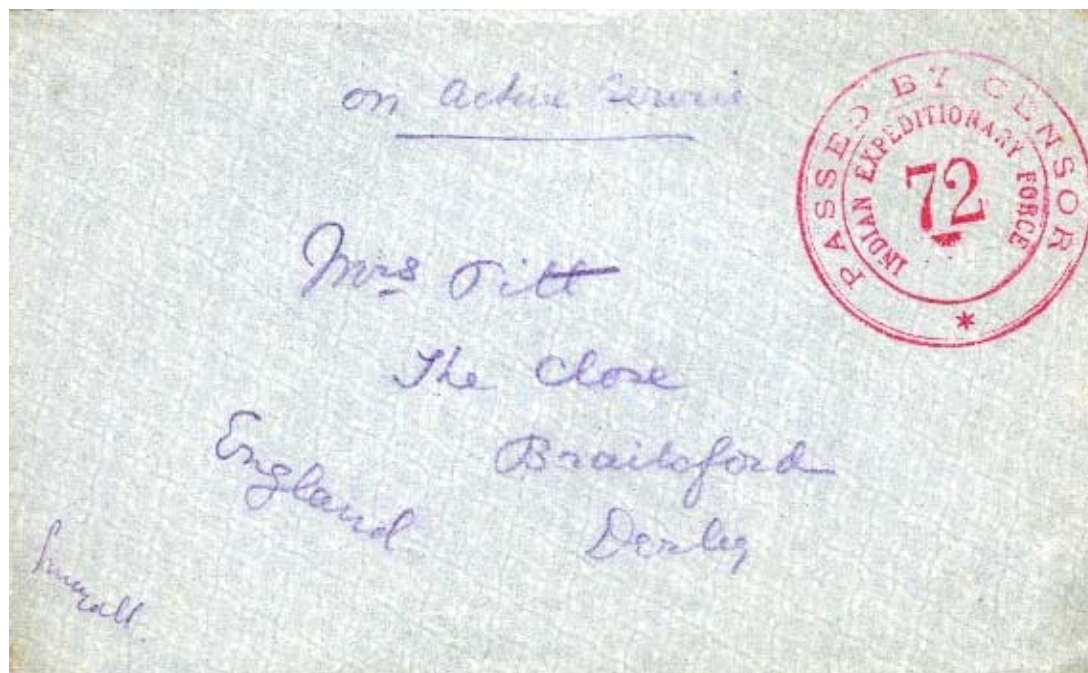 on Active Service
PASSED BY CENSOR
INDIAN EXPEDITIONARY FORCE
72
*
Mrs Titt
The Close
Brailsford
England
Derby